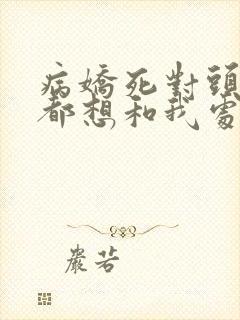 病嬌死對頭
都想和我處
嚴若